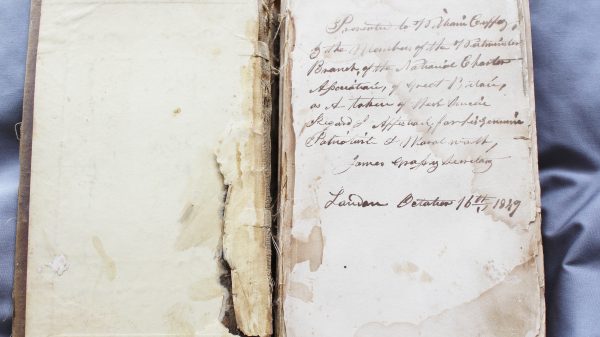 Presented to William Cuffay,
by the Members, of the Westminster
Branch, of the National Charter
Association, of Great Britain,
as A token of their Sincere
Regard & Affection, for his genuine
Patriotism & Moral worth,
James Grassby Secretary
London October 16th, 1849